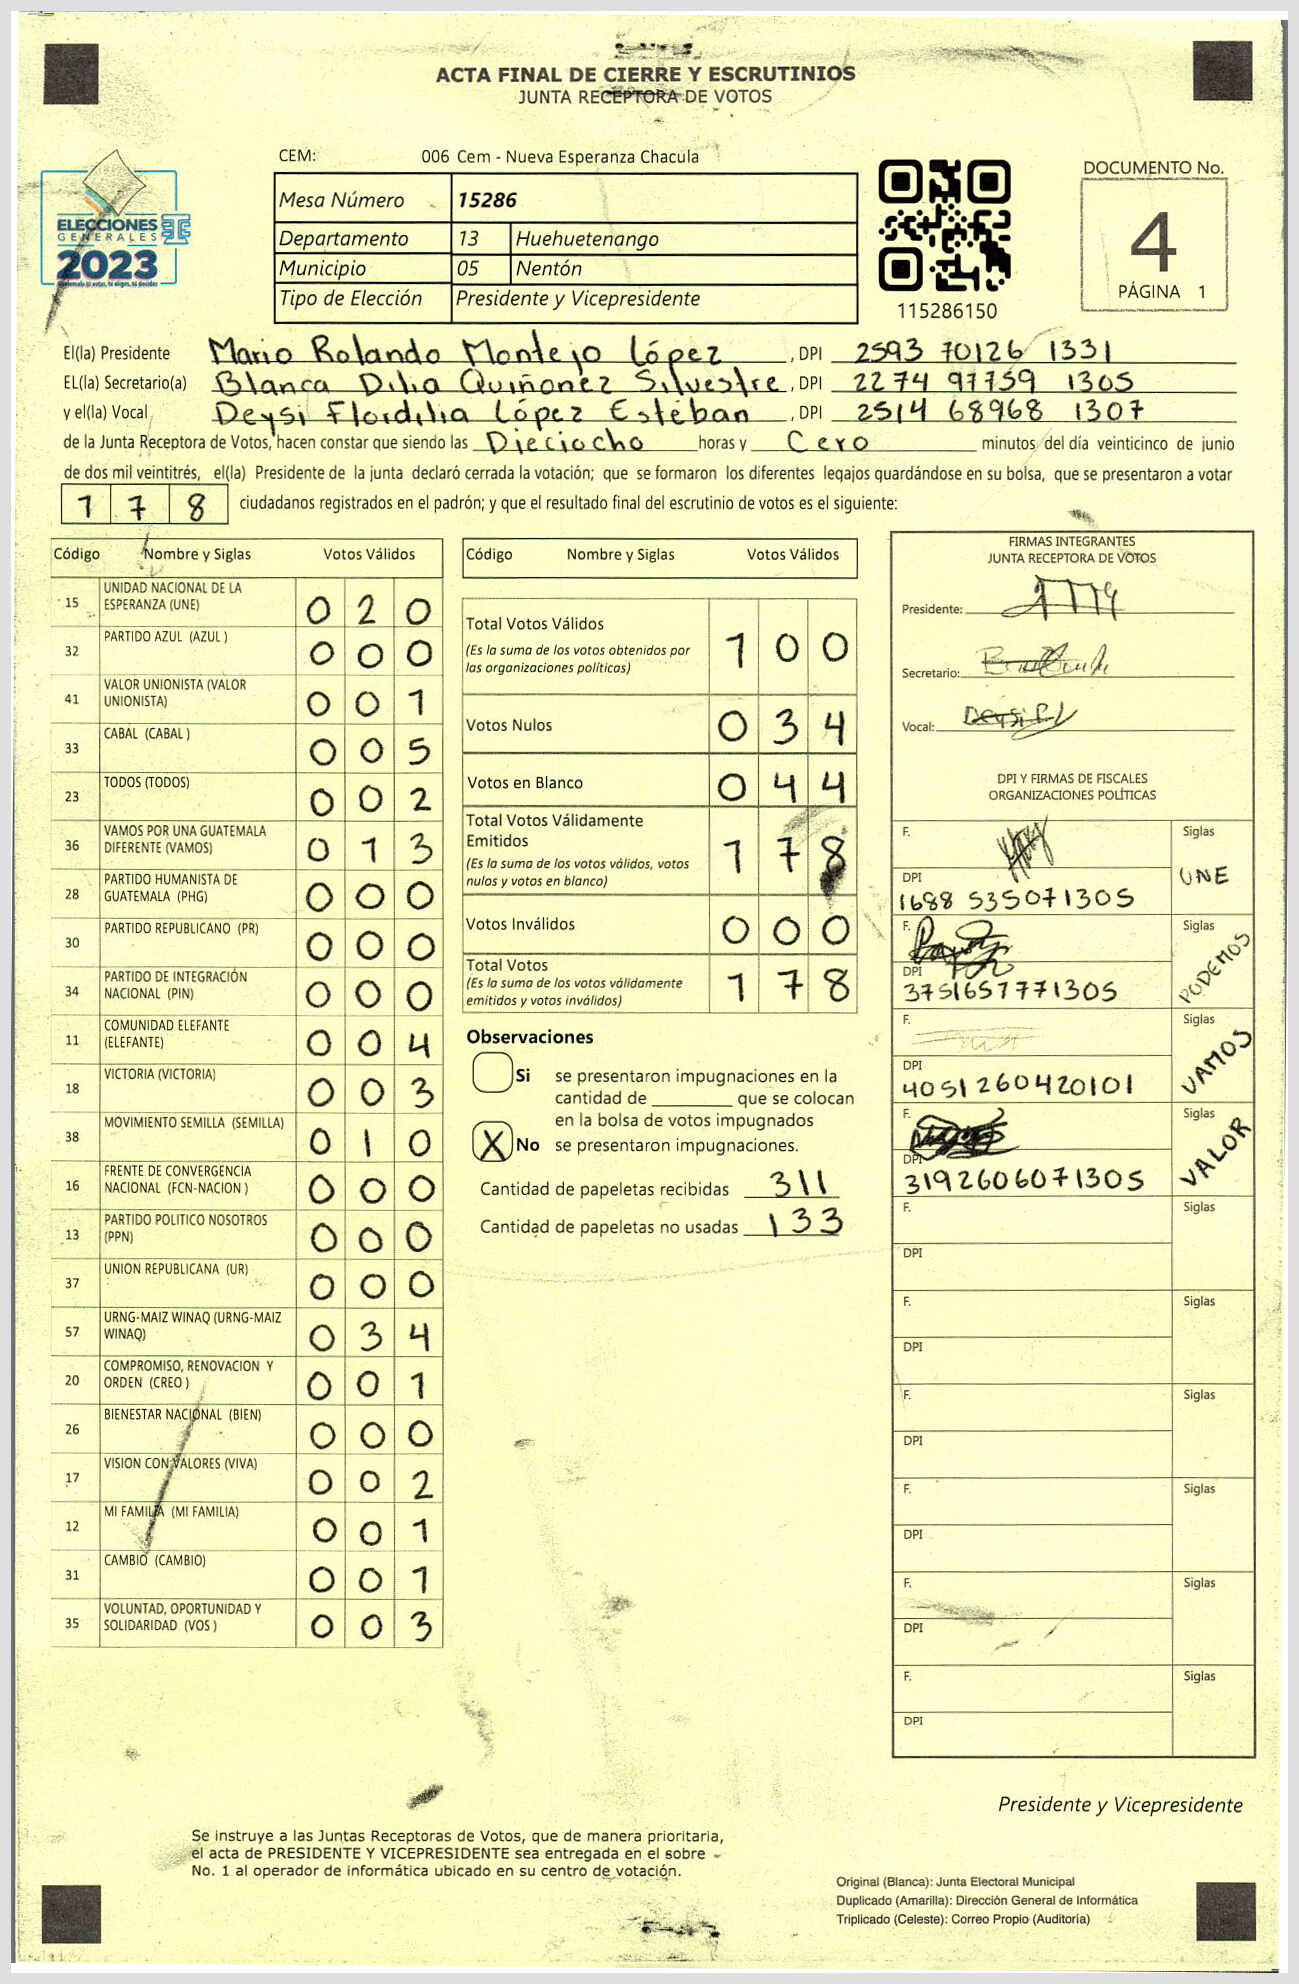 ACTA FINAL DE CIERRE Y ESCRUTINIOS
JUNTA RECEPTORA DE VOTOS
ELECCIONES
GENERALES
2023
CEM: 006 Cem - Nueva Esperanza Chacula
Mesa Número 15286
Departamento 13 Huehuetenango
Municipio 05 Nentón
Tipo de Elección Presidente y Vicepresidente
115286150
DOCUMENTO No.
4
PÁGINA 1
El(la) Presidente Mario Rolando Montejo López, DPI 2593 70126 1331
EL(la) Secretario(a) Blanca Dilia Quiñonez Silvestre, DPI 2274 97759 1305
y el(la) Vocal Deysi Flordilia López Estéban, DPI 2514 68968 1307
de la Junta Receptora de Votos, hacen constar que siendo las Dieciocho horas y Cero minutos del día veinticinco de junio
de dos mil veintitrés, el(la) Presidente de la junta declaró cerrada la votación; que se formaron los diferentes legajos guardándose en su bolsa, que se presentaron a votar
178 ciudadanos registrados en el padrón; y que el resultado final del escrutinio de votos es el siguiente:
Código Nombre y Siglas Votos Válidos
15 UNIDAD NACIONAL DE LA ESPERANZA (UNE) 0 2 0
32 PARTIDO AZUL (AZUL ) 0 0 0
41 VALOR UNIONISTA (VALOR UNIONISTA) 0 0 1
33 CABAL (CABAL ) 0 0 5
23 TODOS (TODOS) 0 0 2
36 VAMOS POR UNA GUATEMALA DIFERENTE (VAMOS) 0 1 3
28 PARTIDO HUMANISTA DE GUATEMALA (PHG) 0 0 0
30 PARTIDO REPUBLICANO (PR) 0 0 0
34 PARTIDO DE INTEGRACIÓN NACIONAL (PIN) 0 0 0
11 COMUNIDAD ELEFANTE (ELEFANTE) 0 0 4
18 VICTORIA (VICTORIA) 0 0 3
38 MOVIMIENTO SEMILLA (SEMILLA) 0 1 0
16 FRENTE DE CONVERGENCIA NACIONAL (FCN-NACION ) 0 0 0
13 PARTIDO POLITICO NOSOTROS (PPN) 0 0 0
37 UNION REPUBLICANA (UR) 0 0 0
57 URNG-MAIZ WINAQ (URNG-MAIZ WINAQ) 0 3 4
20 COMPROMISO, RENOVACION Y ORDEN (CREO ) 0 0 1
26 BIENESTAR NACIONAL (BIEN) 0 0 0
17 VISION CON VALORES (VIVA) 0 0 2
12 MI FAMILIA (MI FAMILIA) 0 0 1
31 CAMBIO (CAMBIO) 0 0 1
35 VOLUNTAD, OPORTUNIDAD Y SOLIDARIDAD (VOS ) 0 0 3
Código Nombre y Siglas Votos Válidos
Total Votos Válidos 1 0 0
(Es la suma de los votos obtenidos por
las organizaciones políticas)
Votos Nulos 0 3 4
Votos en Blanco 0 4 4
Total Votos Válidamente
Emitidos 1 7 8
(Es la suma de los votos válidos, votos
nulos y votos en blanco)
Votos Inválidos 0 0 0
Total Votos 1 7 8
(Es la suma de los votos válidamente
emitidos y votos inválidos)
Observaciones
Si se presentaron impugnaciones en la
cantidad de ________ que se colocan
en la bolsa de votos impugnados
X No se presentaron impugnaciones.
Cantidad de papeletas recibidas 311
Cantidad de papeletas no usadas 133
FIRMAS INTEGRANTES
JUNTA RECEPTORA DE VOTOS
Presidente:
Secretario:
Vocal:
DPI Y FIRMAS DE FISCALES
ORGANIZACIONES POLÍTICAS
F. Siglas
UNE
DPI
1688 535071305
F. Siglas
PODEMOS
DPI
3751657771305
F. Siglas
VAMOS
DPI
4051260420101
F. Siglas
VALOR
DPI
3192606071305
F. Siglas
DPI
F. Siglas
DPI
F. Siglas
DPI
F. Siglas
DPI
F. Siglas
DPI
F. Siglas
DPI
Presidente y Vicepresidente
Se instruye a las Juntas Receptoras de Votos, que de manera prioritaria,
el acta de PRESIDENTE Y VICEPRESIDENTE sea entregada en el sobre
No. 1 al operador de informática ubicado en su centro de votación.
Original (Blanca): Junta Electoral Municipal
Duplicado (Amarilla): Dirección General de Informática
Triplicado (Celeste): Correo Propio (Auditoría)